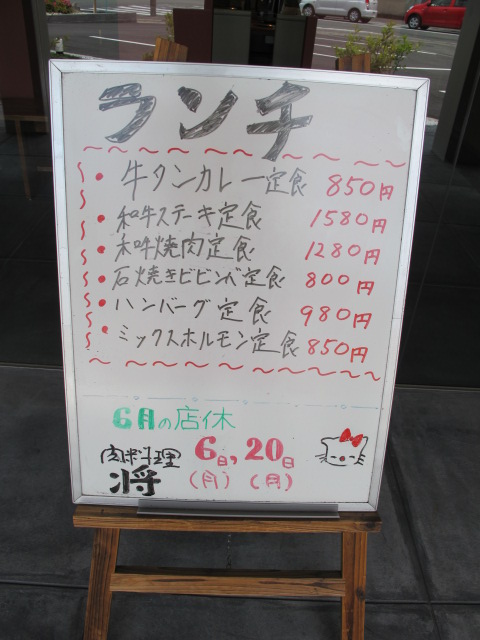 ランチ
・牛タンカレー定食 850円
・和牛ステーキ定食 1580円
・和牛焼肉定食 1280円
・石焼きビビンバ定食 800円
・ハンバーグ定食 980円
・ミックスホルモン定食 850円
6月の店休
肉料理 6日,20日
将 (月) (月)